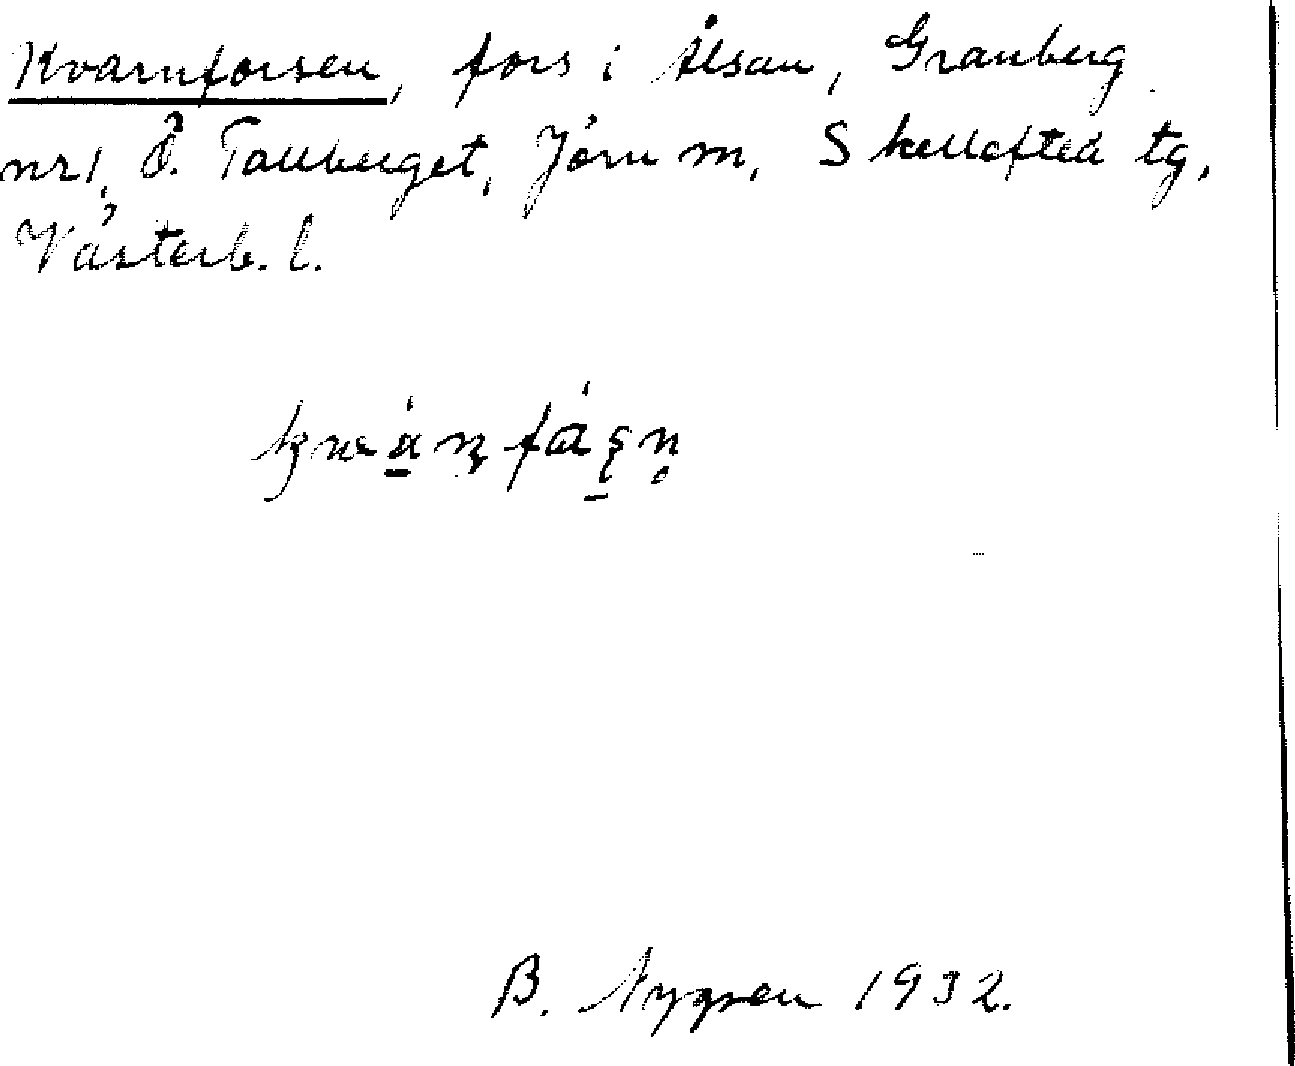 Kvarnforsen, fors i Ålsån, Granberg
nr 1, Ö. Tallberget, Jörn sn, Skellefteå tg,
Västerb. l.
B. Nygren 1932.